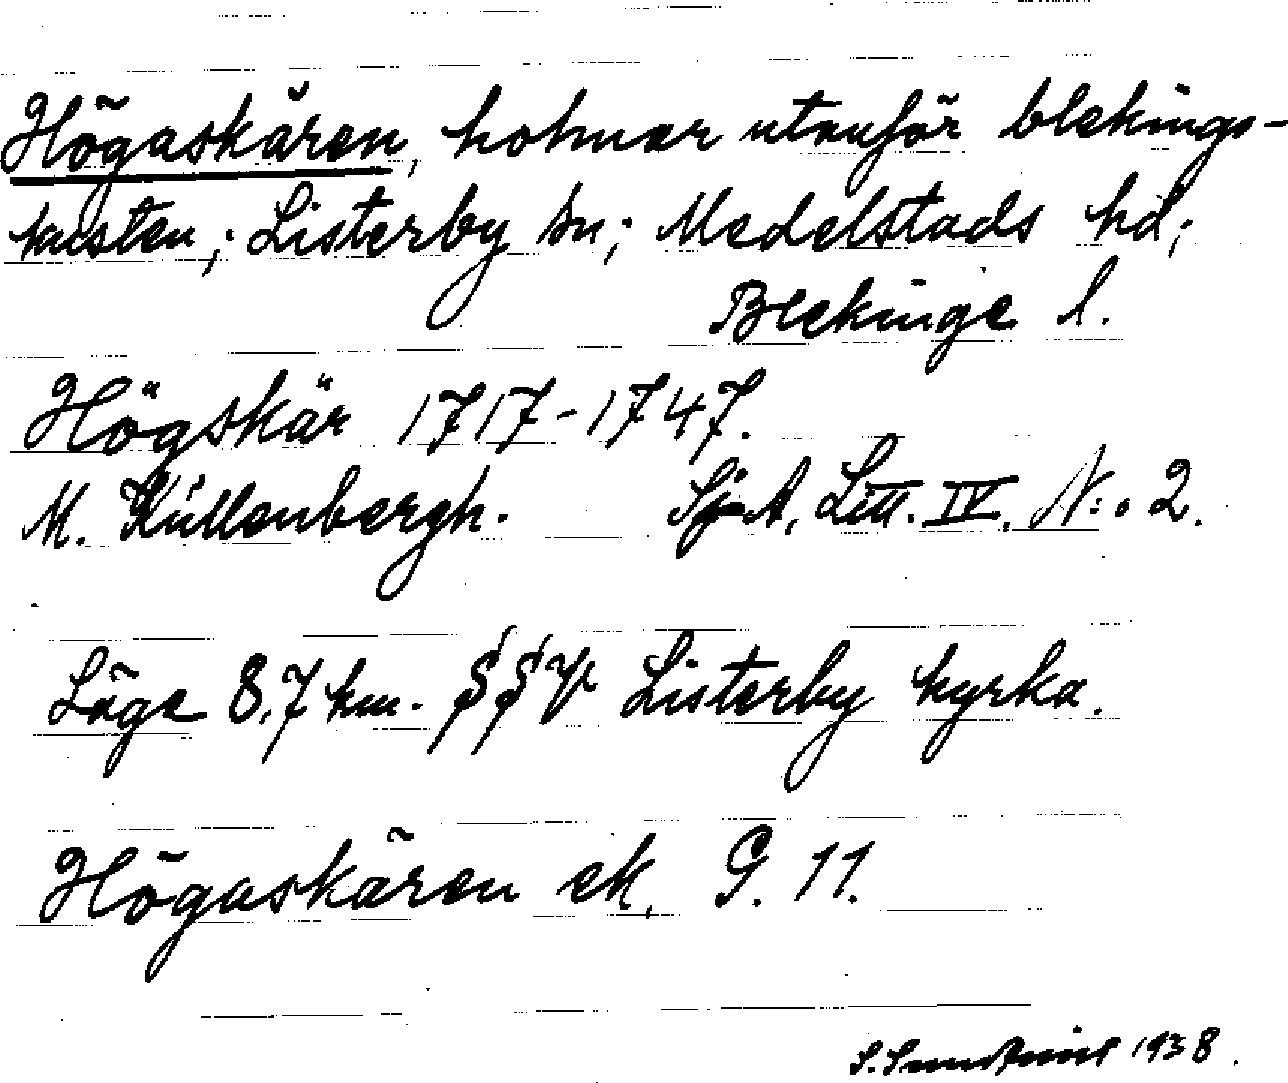 Högaskären, holmar utanför blekings-
kusten; Listerby sn; Medelstads hd;
Blekinge l.
Högskär 1717-1747.
M. Küllenbergh. SjA, Litt. IV. N:o 2.
Läge 8,7 km. SSV Listerby kyrka.
Högaskären ek. G. 11.
1938.